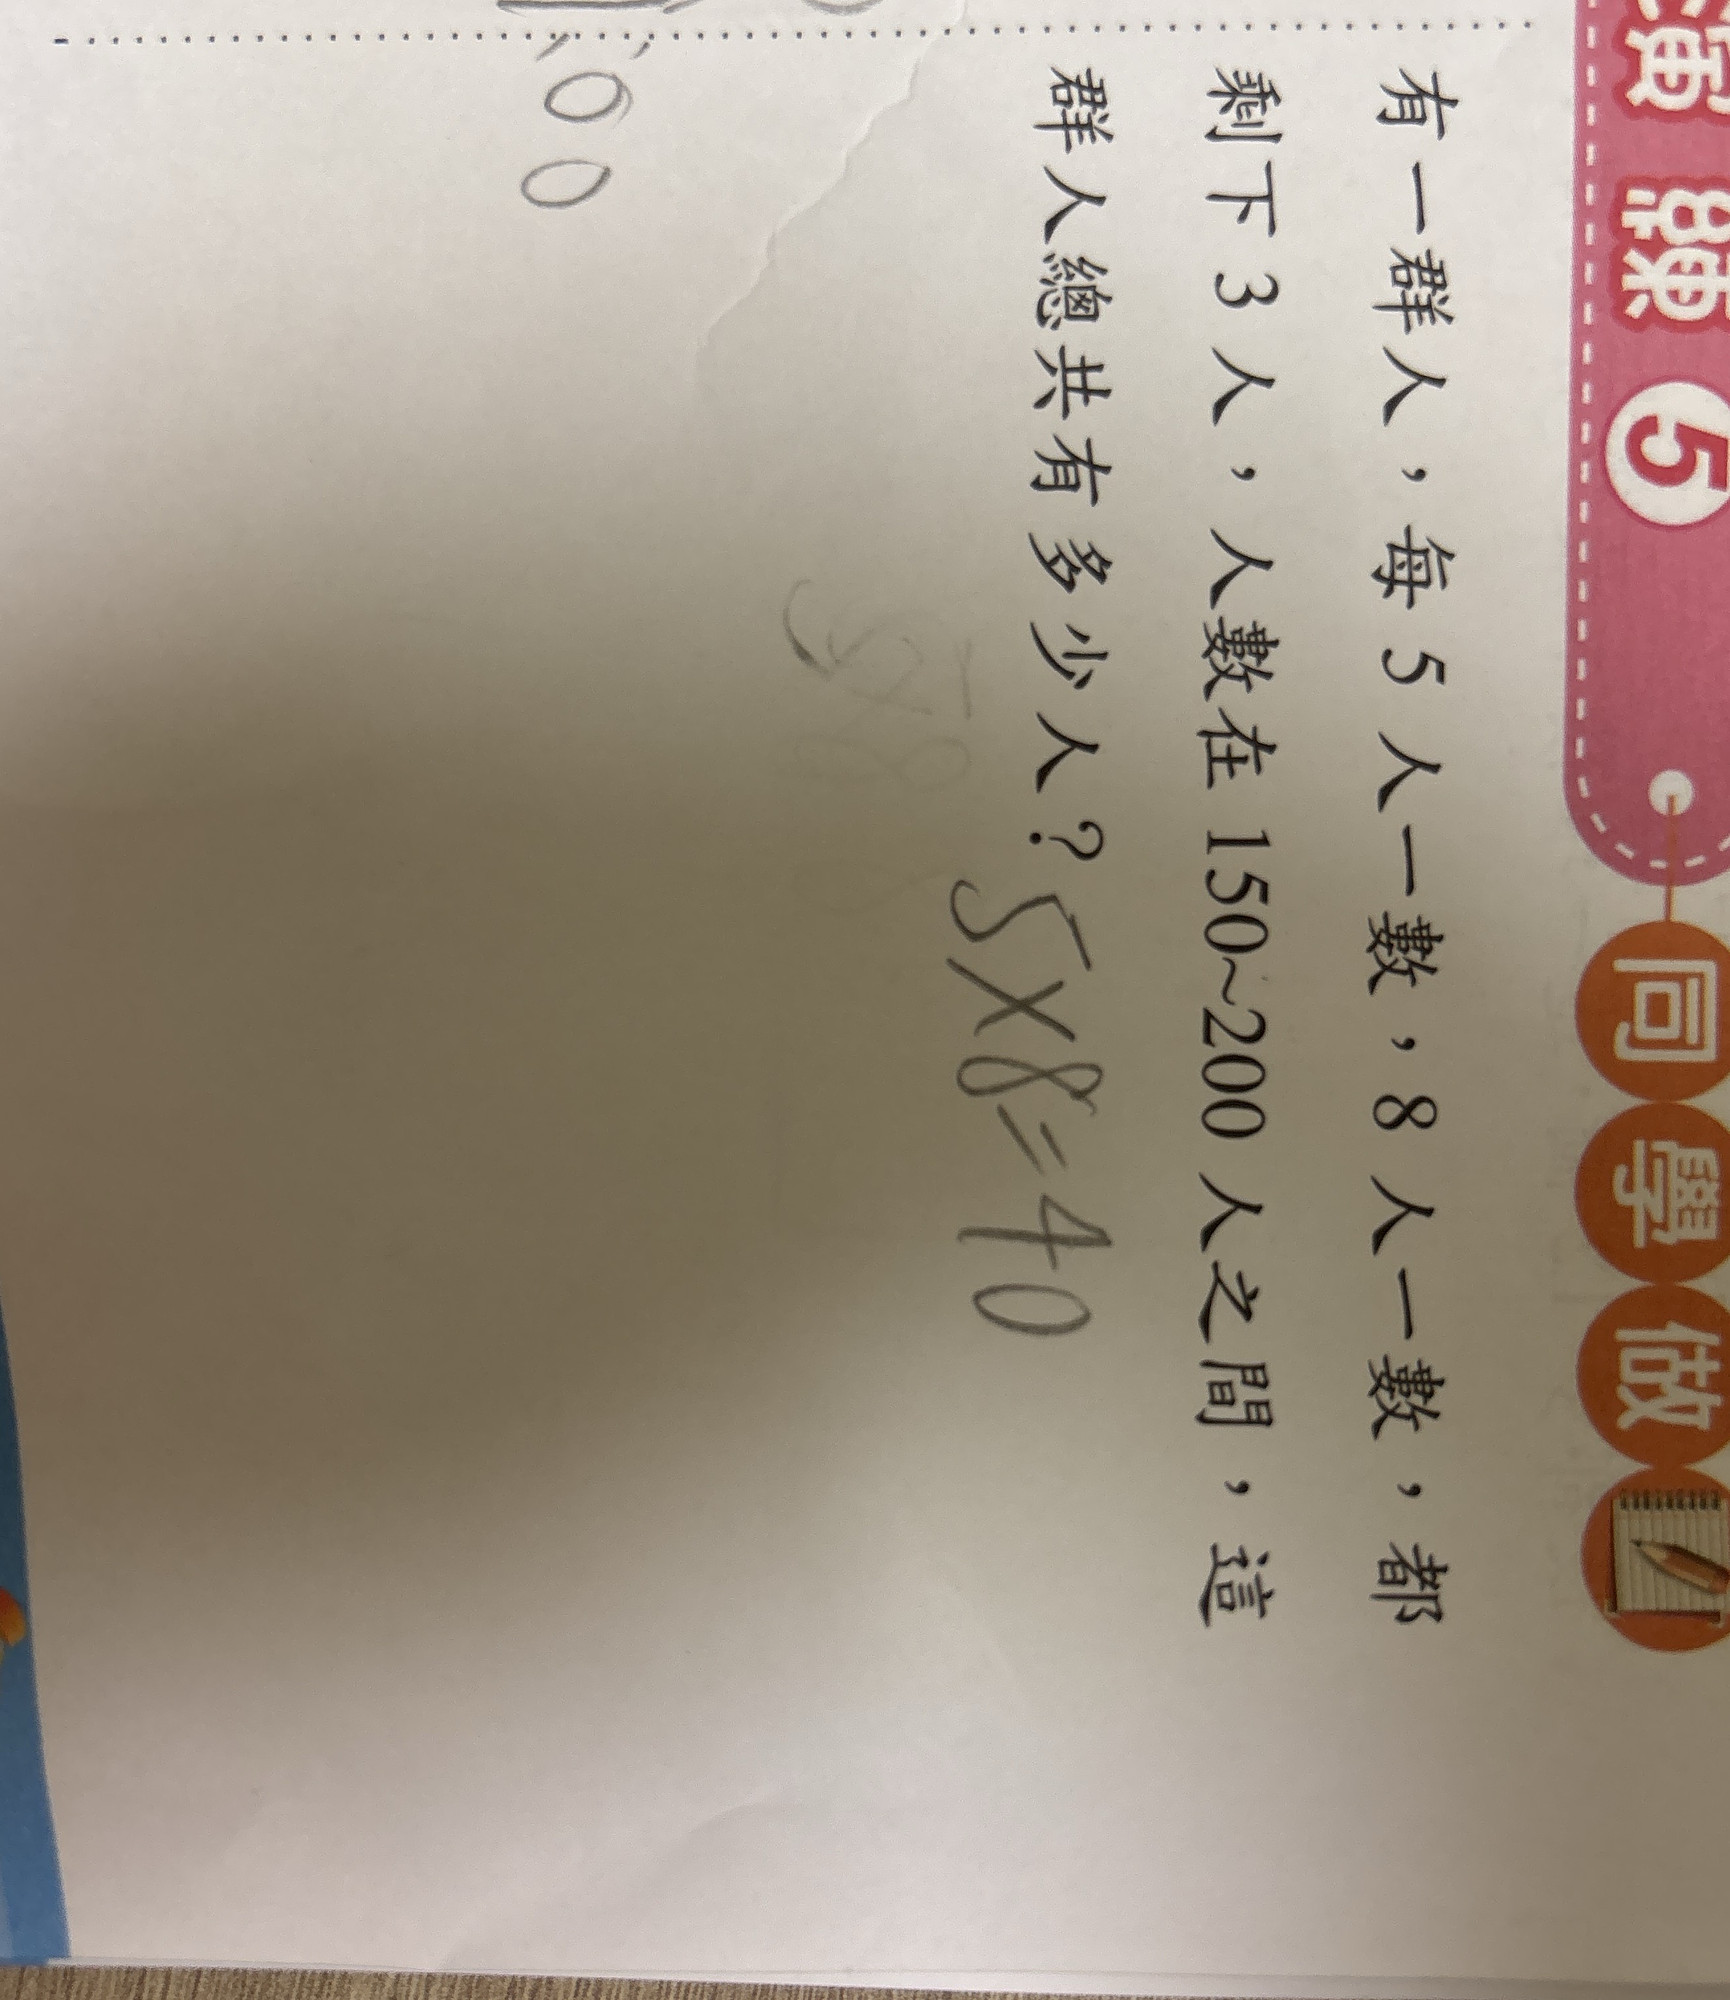 挑戰 5 同學做
有一群人，每 5 人一數，8 人一數，都
剩下 3 人，人數在 150~200 人之間，這
群人總共有多少人？
5×8=40